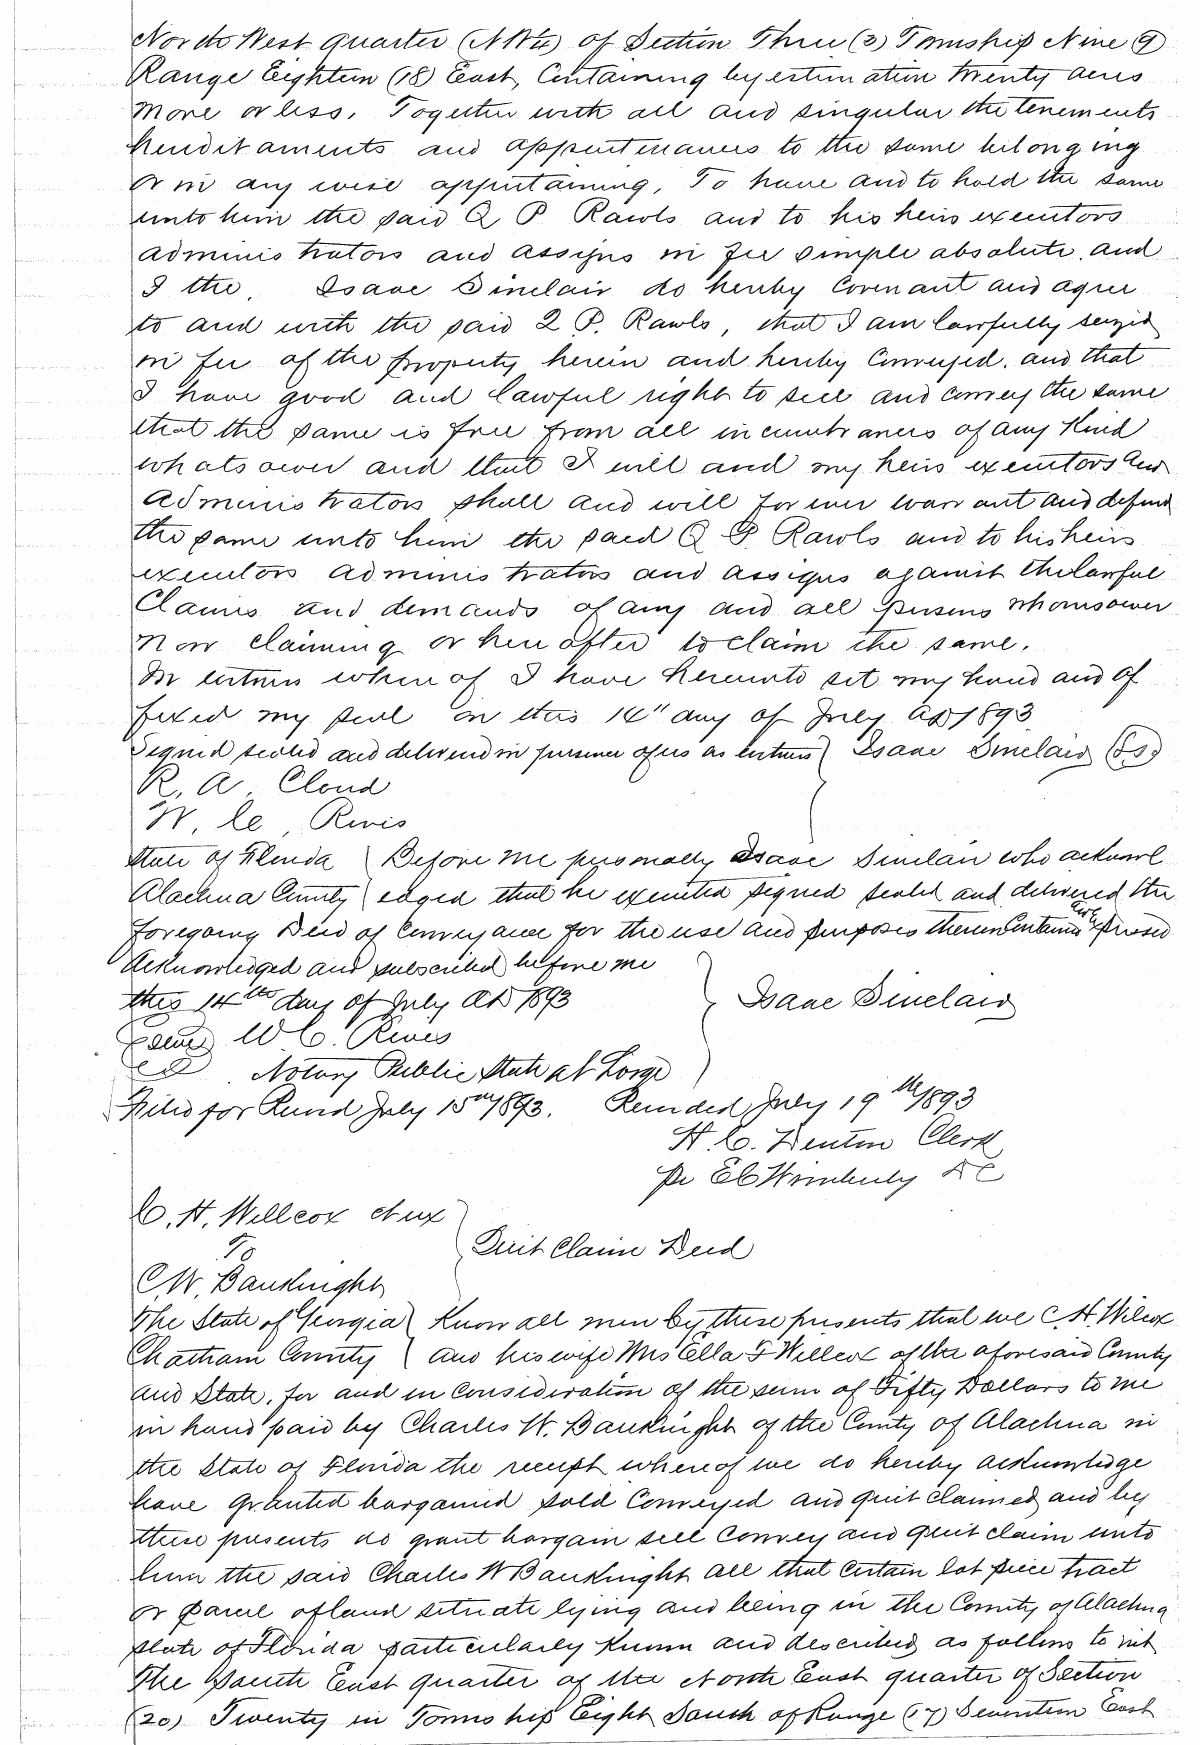 North West quarter (NW¼) of Section Three (3) Township Nine (9)
Range Eighteen (18) East, Containing by estimation twenty acres
more or less. Together with all and singular the tenements
hereditaments and appurtenances to the same belonging
or in any wise appertaining, To have and to hold the same
unto him the said Q P Rawls and to his heirs executors
administrators and assigns in fee simple absolute. and
I the, Isaac Sinclair do hereby Covenant and agree
to and with the said Q P. Rawls, that I am lawfully seized
in fee of the property herein and hereby Conveyed. and that
I have good and lawful right to sell and convey the same
that the same is free from all incumbrances of any Kind
whatsoever and that I will and my heirs executors and
administrators shall and will forever warrant and defend
the same unto him the said Q P Rawls and to his heirs
executors administrators and assigns against the lawful
Claims and demands of any and all persons whomsoever
now claiming or hereafter to claim the same.
In witness whereof I have hereunto set my hand and af
fixed my seal on this 14" day of July AD 1893
Signed sealed and delivered in presence of us as witness } Isaac Sinclair (L.S.)
R. A. Cloud
W. C. Rives
State of Florida } Before me personally Isaac Sinclair who acknowl
Alachua County } edged that he executed signed sealed and delivered the
foregoing Deed of Conveyance for the use and purposes therein Contained and expressed
Acknowledged and subscribed before me
this 14th day of July AD 1893 } Isaac Sinclair
W. C. Rives
Notary Public State at Large
Filed for Record July 15th 1893. Recorded July 19th 1893
H. C. Denton Clerk
per E C Wimberly D C
C. H. Willcox et ux
To } Quit Claim Deed
C. W. Bauknight
The State of Georgia } Know all men by these presents that we C. H. Wilcox
Chatham County } and his wife Mrs Ella F Willcox of the aforesaid County
and State, for and in Consideration of the sum of Fifty Dollars to me
in hand paid by Charles W. Bauknight of the County of Alachua in
the State of Florida the receipt whereof we do hereby acknowledge
have granted bargained sold Conveyed and quit claimed and by
these presents do grant bargain sell Convey and quit claim unto
him the said Charles W Bauknight all that Certain lot piece tract
or parcel of land situate lying and being in the County of Alachua
state of Florida particularly known and described as follows to wit
The South East quarter of the North East quarter of Section
(20) Twenty in Township Eight South of Range (17) Seventeen East